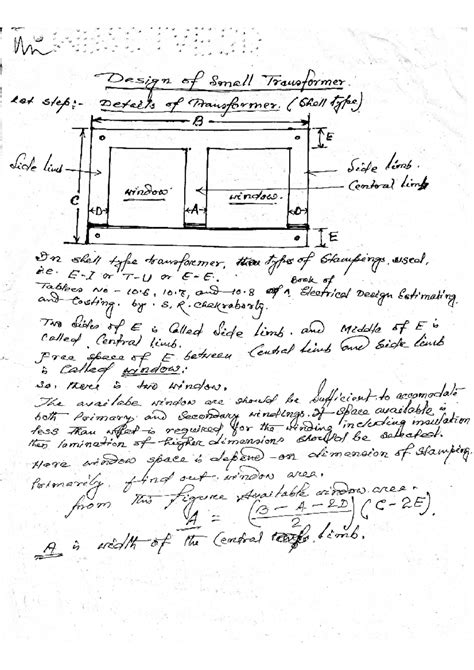 Design of Small Transformer.
1st step:- Details of Transformer. (Shell type)
B
E
Side limb
Side limb.
Central limb
window.
window.
C
D
A
D
E
In shell type transformer, types of Stampings used,
i.e. E-I or T-U or E-E.
Book of
Tables No - 10.6, 10.7, and 10.8 of Electrical Design Estimating
and Costing. by. S. R. Chakraborty.
Two Sides of E is Called Side limb. and Middle of E is
Called Central limb.
Free space of E between Central Limb and Side limb
is Called window:
So. there is two window.
The availabe window are should be Sufficient to accomodate
both Primary and Secondary windings. If space available is
less than is required for the winding including insulation
then lamination of higher dimensions should be selected.
More window space is depend on dimension of Stamping.
Primarily find out window area.
from this figure Available window area.
A = (B - A - 2D)/2 (C - 2E).
A is width of the Central limb.